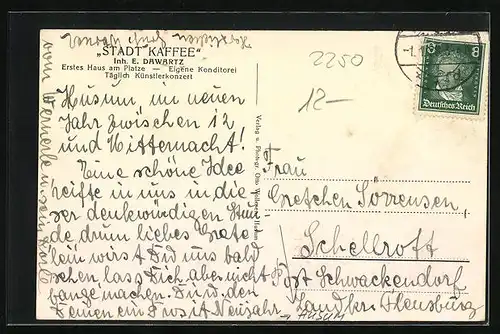 „STADT KAFFEE"
Inh. E. DAWARTZ
Erstes Haus am Platze — Eigene Konditorei
Täglich Künstlerkonzert
Husum, im neuen
Jahr zwischen 12
und Mitternacht!
Eine schöne Idee
reifte in uns in die-
ser denkwürdigen Stun
de, drum liebes Grete
lein wirst Du uns bald
sehen, lass Dich aber nicht
bange machen.
Deinen ein Prosit Neujahr
2250
12—
Verlag u. Photogr. Otto
8
Deutsches Reich
Frau
Gretchen Sörrensen
Schellrott
Post Schwackendorf
Landkr. Flensburg
→ HUSUM